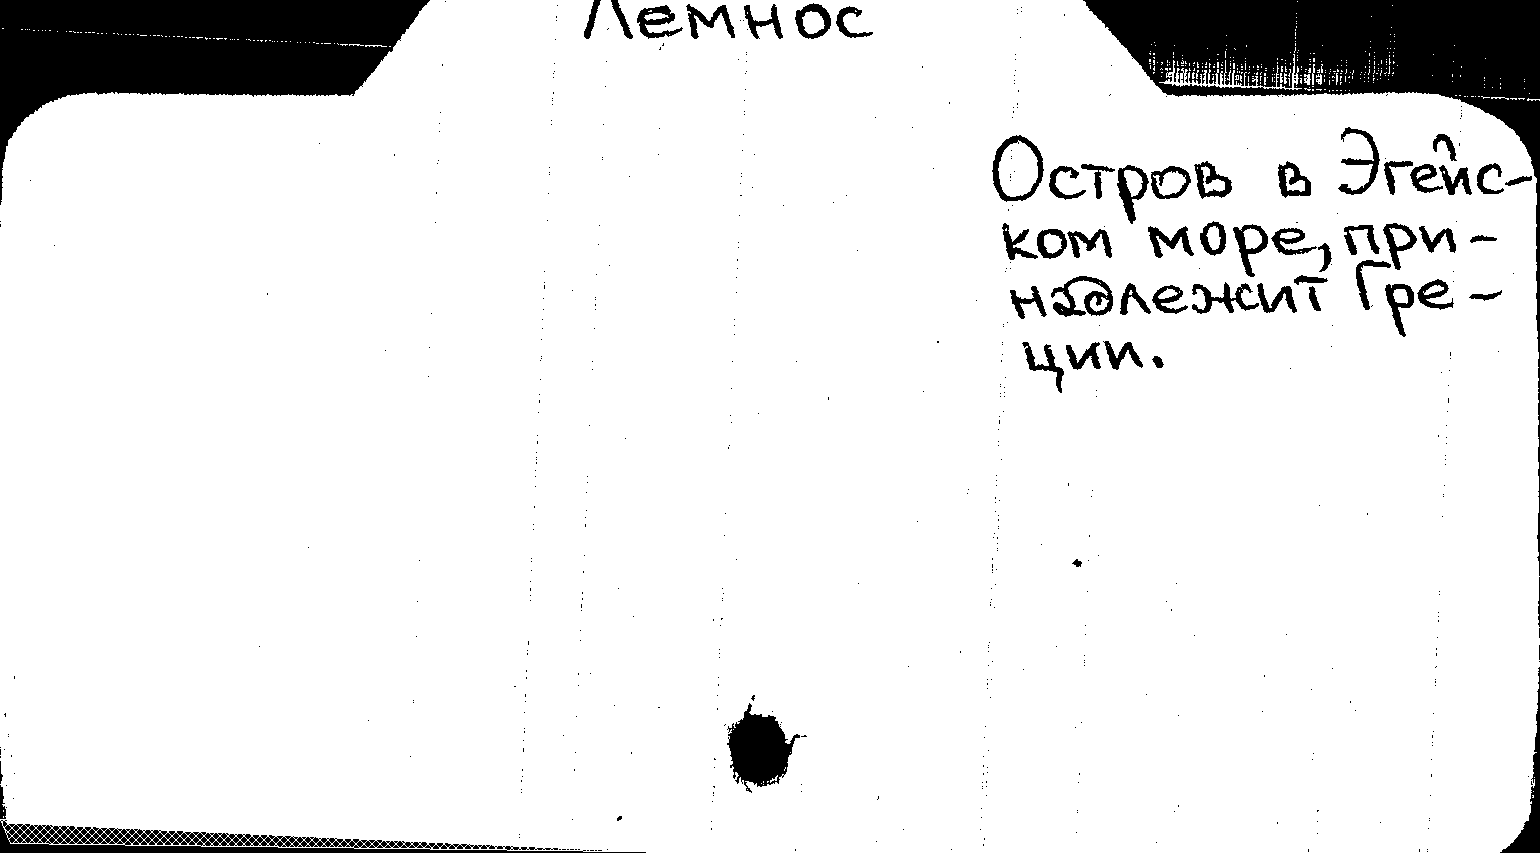 Лемнос
Остров в Эгейс-
ком море, при-
надлежит Гре-
ции.